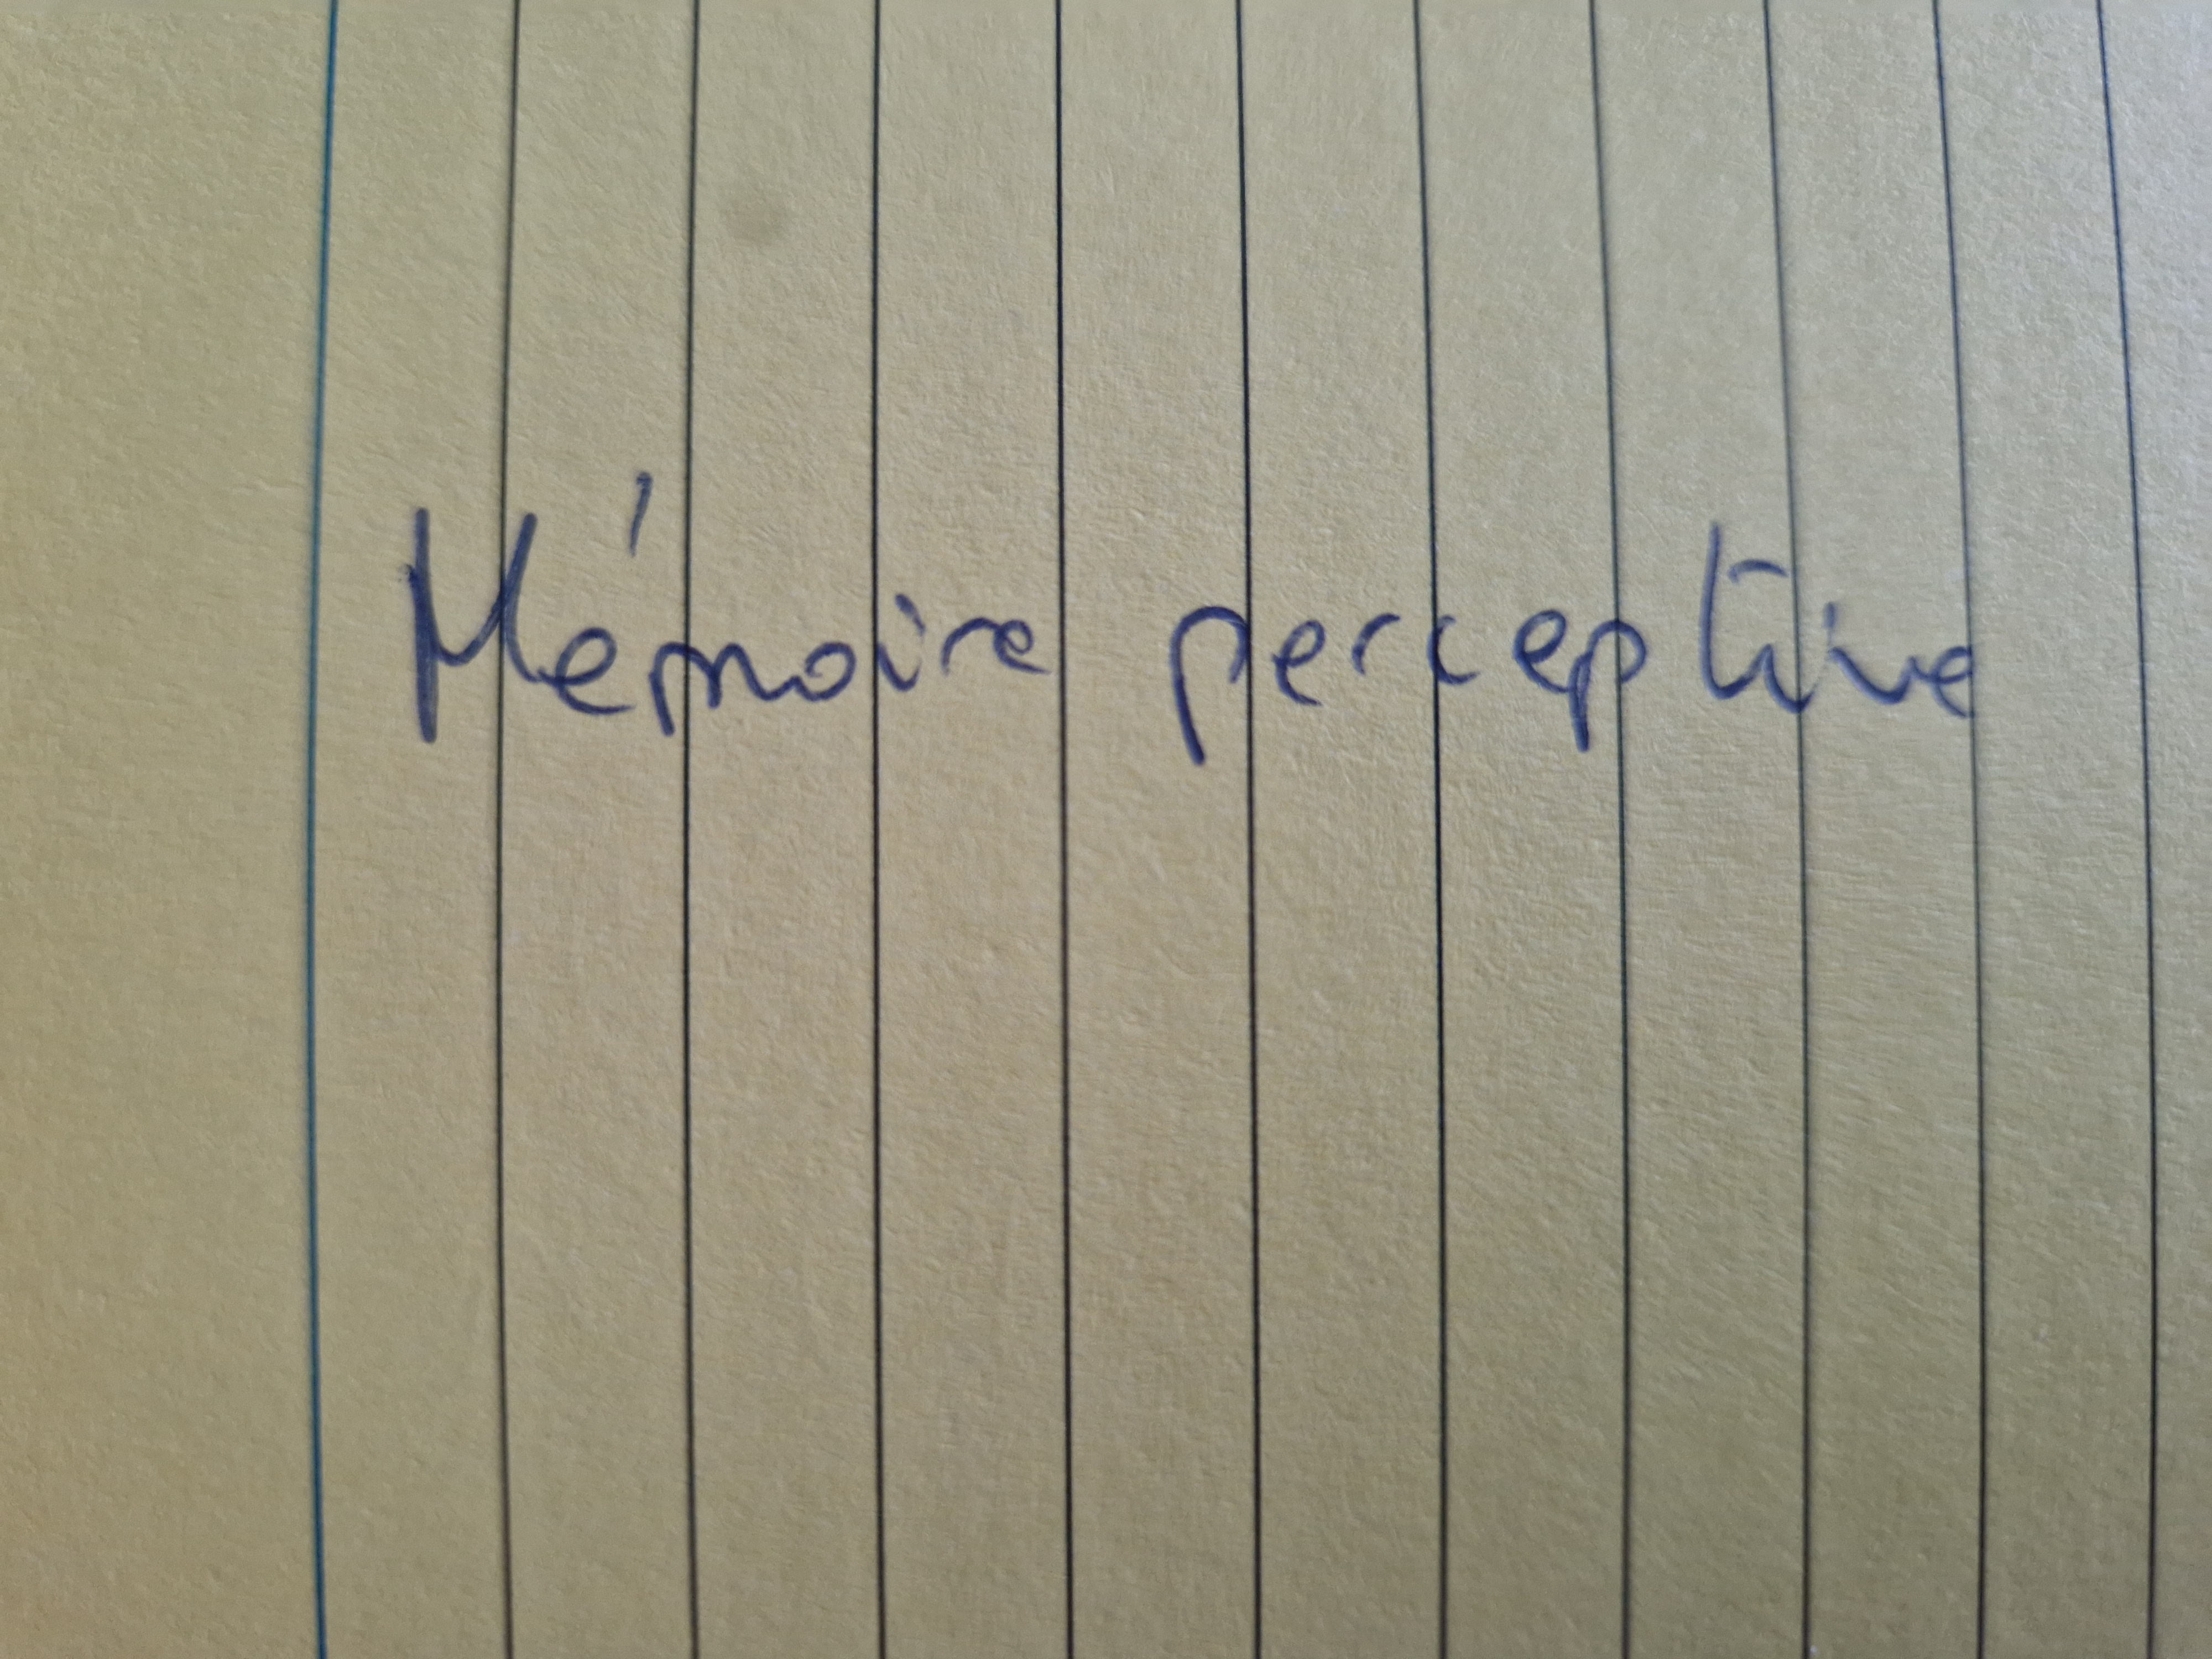 Mémoire perceptive